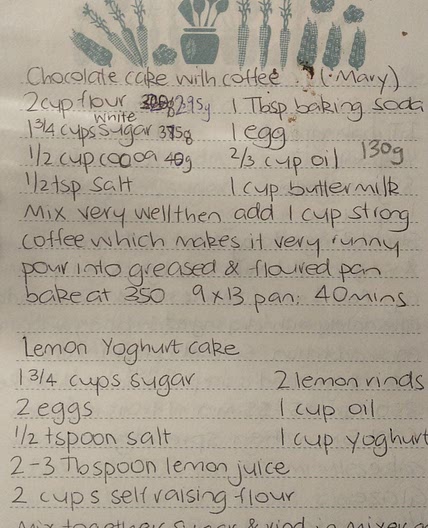 Chocolate cake with coffee (Mary)
2 cup flour 295g 1 Tbsp baking soda
1 3/4 cups white sugar 375g 1 egg
1/2 cup cocoa 40g 2/3 cup oil 130g
1/2 tsp salt 1 cup buttermilk
Mix very well then add 1 cup strong
coffee which makes it very runny
pour into greased & floured pan
bake at 350 9x13 pan: 40 mins
Lemon Yoghurt cake
1 3/4 cups sugar 2 lemon rinds
2 eggs 1 cup oil
1/2 tspoon salt 1 cup yoghurt
2-3 Tbspoon lemon juice
2 cups self raising flour
Mix together sugar & rind in mixer